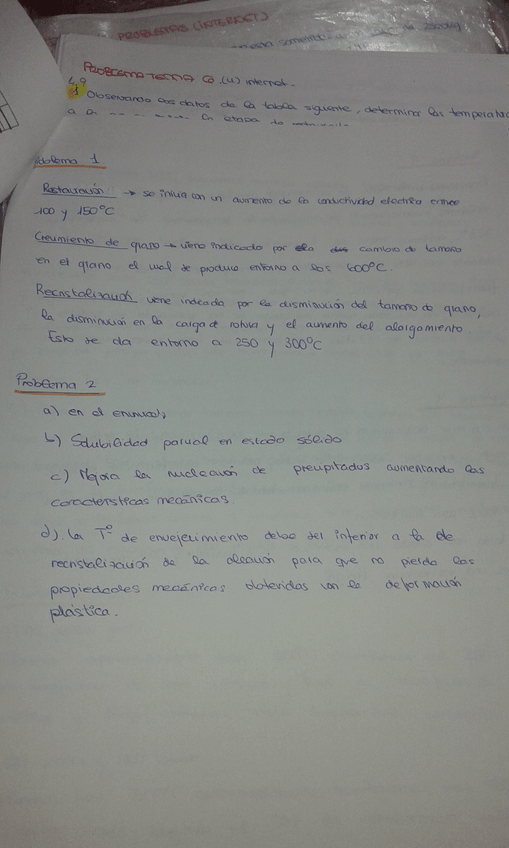 PROBLEMAS (INTERNET)
PROBLEMAS TEMA (4) internet.
4,9
1 Observando los datos de la tabla siguiente, determinar las temperatura
a la
Problema 1
Restauración → se inicia con un aumento de la conductividad electrica entre
100 y 150°C
Crecimiento de grano → viene indicado por el cambio de tamaño
en el grano el cual se produce entorno a los 400°C.
Recristalización viene indicada por la disminución del tamaño de grano,
la disminución en la carga de rotura y el aumento del alargamiento
Esto se da entorno a 250 y 300°C
Problema 2
a) en el enunciado
b) Solubilidad parcial en estado sólido
c) Mejora la nucleación de precipitados aumentando las
características mecánicas.
d) La Tº de envejecimiento debe ser inferior a la de
recristalización de la aleación para que no pierda las
propiedades mecánicas obtenidas con la deformación
plástica.